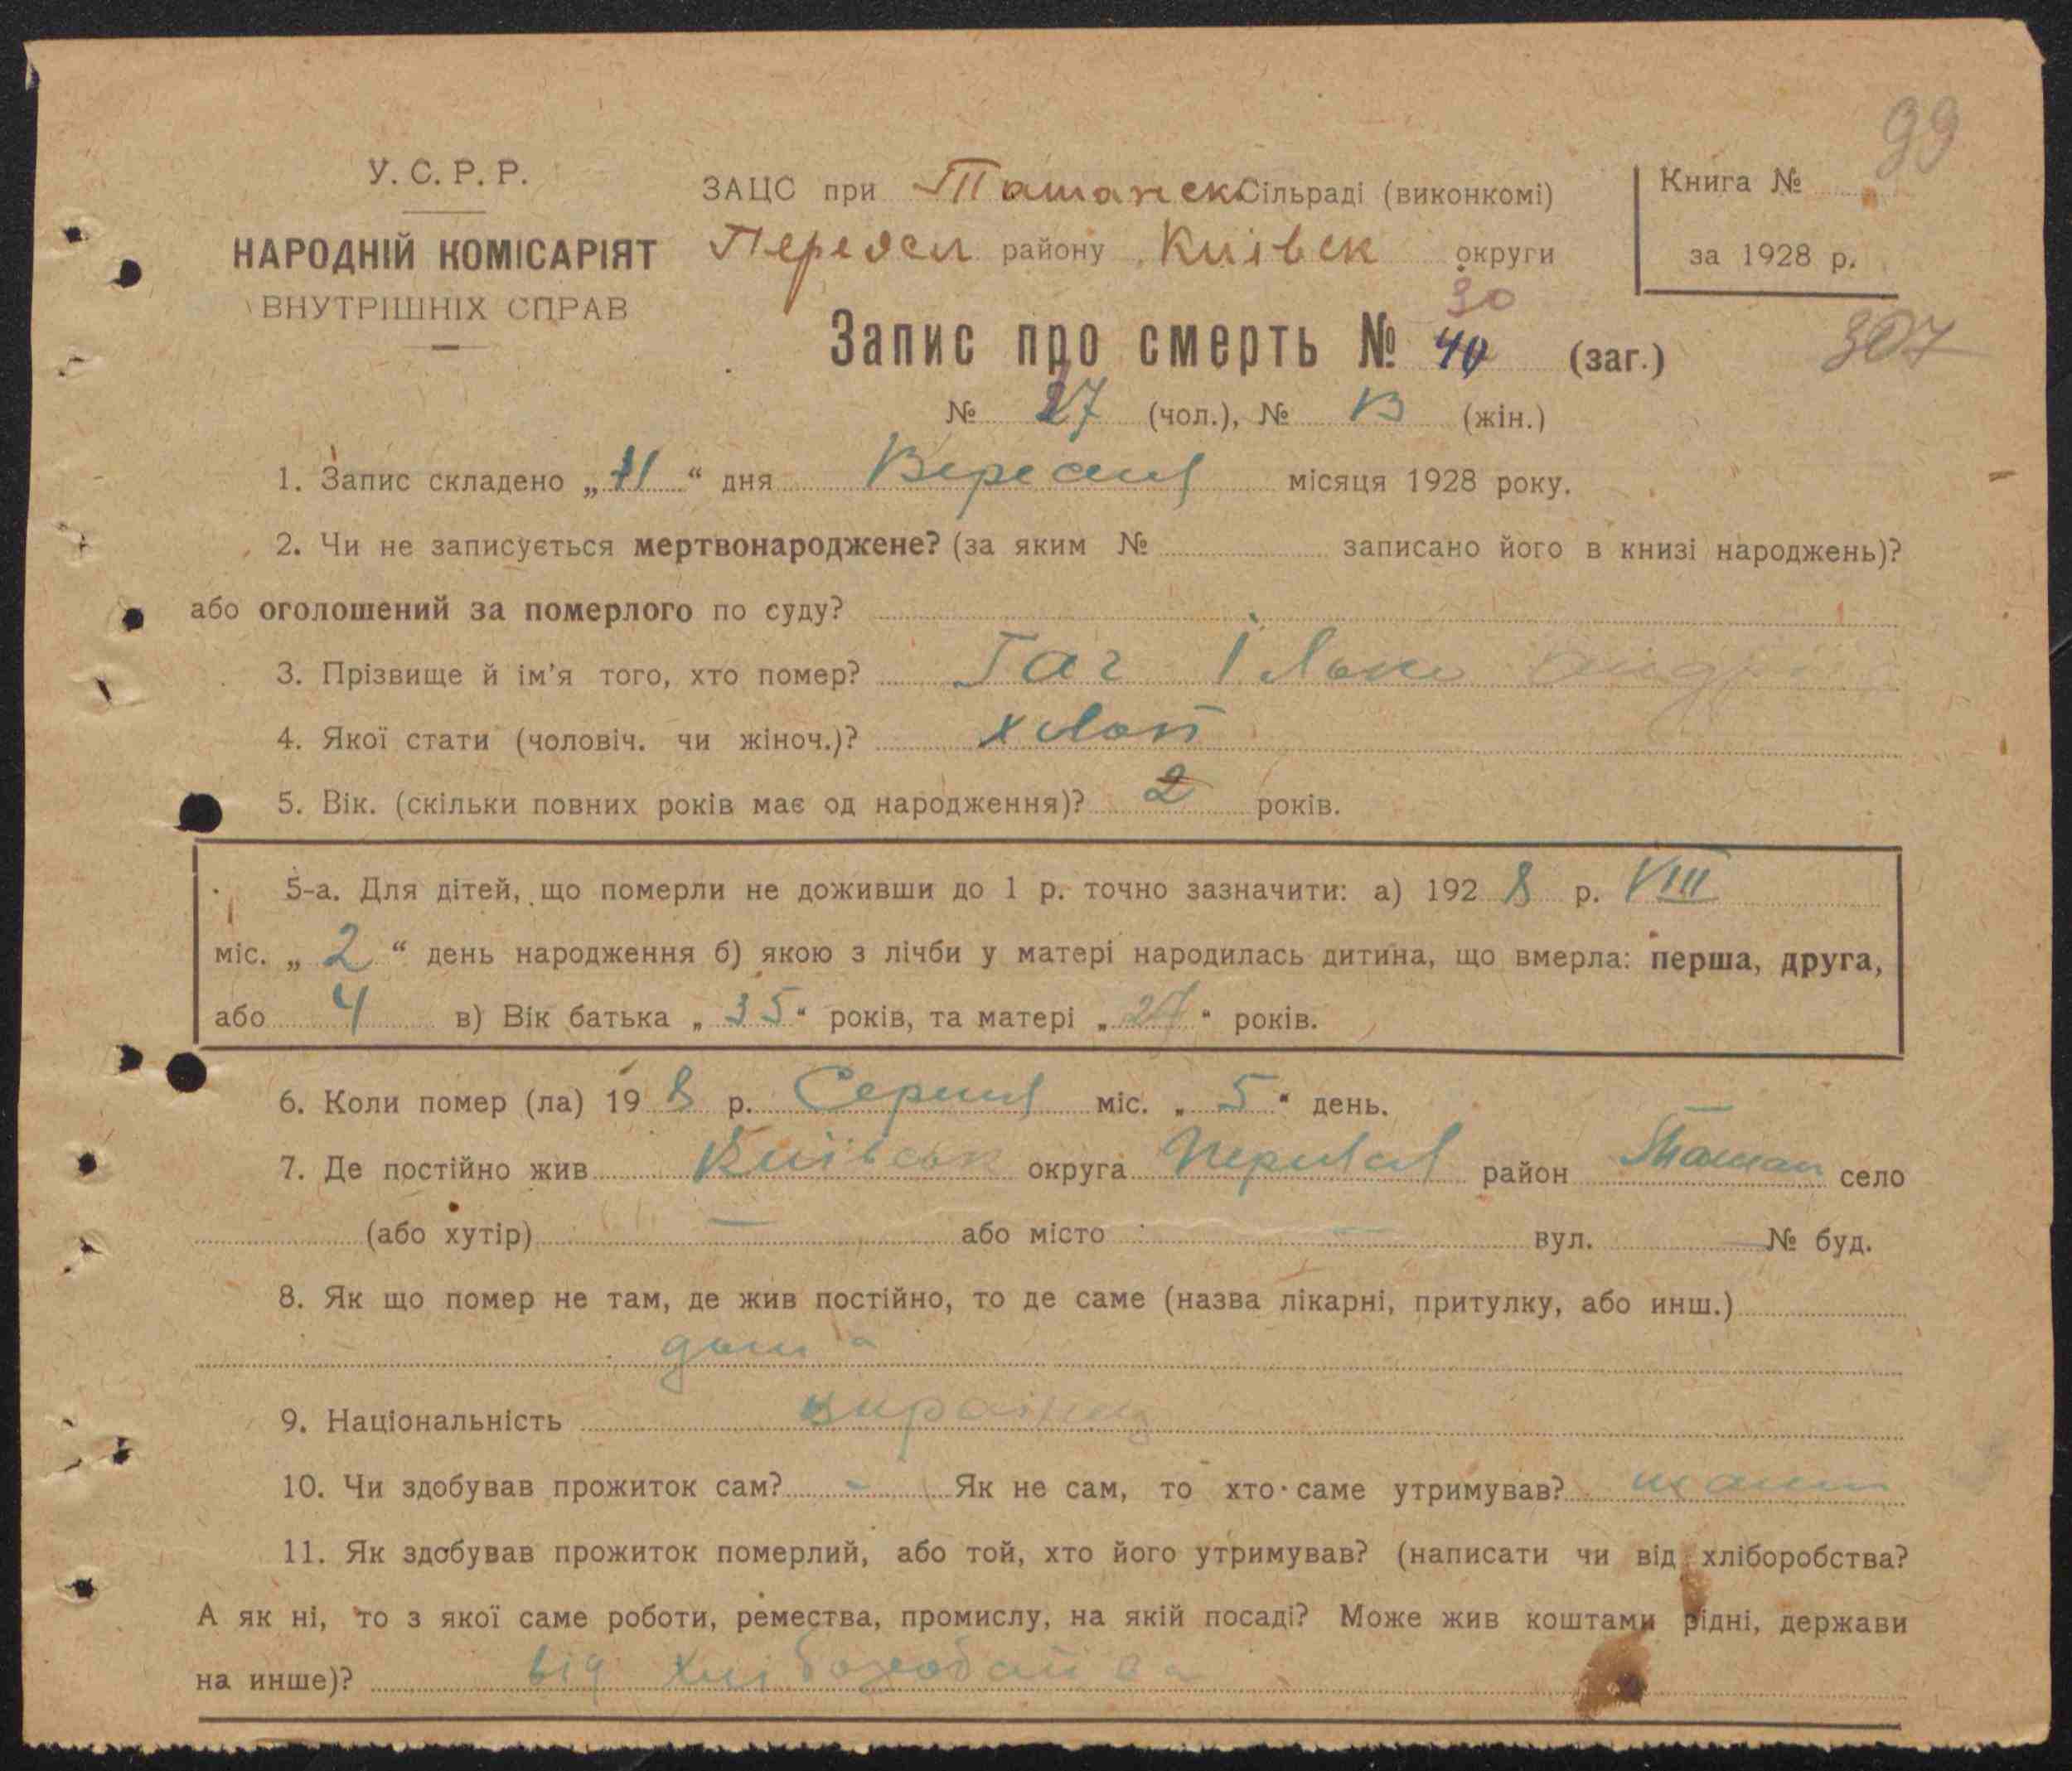 99
У. С. Р. Р.
НАРОДНІЙ КОМІСАРІЯТ
ВНУТРІШНІХ СПРАВ
ЗАЦС при Ташанськ Сільраді (виконкомі)
Переясл району Київськ округи
Книга №
за 1928 р.
30
Запис про смерть № 40 (заг.)
307
№ 27 (чол.), № 13 (жін.)
1. Запис складено „ “ дня Вересня місяця 1928 року.
2. Чи не записується мертвонароджене? (за яким № записано його в книзі народжень)?
або оголошений за померлого по суду?
3. Прізвище й ім’я того, хто помер? Гаг Ілько
4. Якої стати (чоловіч. чи жіноч.)? хлоп
5. Вік. (скільки повних років має од народження)? 2 років.
5-а. Для дітей, що померли не доживши до 1 р. точно зазначити: а) 1928 р. VIII
міс. „2“ день народження б) якою з лічби у матері народилась дитина, що вмерла: перша, друга,
або 4 в) Вік батька „35“ років, та матері „27“ років.
6. Коли помер (ла) 19 8 р. Серпня міс. „5“ день.
7. Де постійно жив Київськ округа Переясл район Ташан село
(або хутір) — або місто — вул. — № буд.
8. Як що помер не там, де жив постійно, то де саме (назва лікарні, притулку, або инш.)
дома
9. Національність
10. Чи здобував прожиток сам? - Як не сам, то хто саме утримував?
11. Як здобував прожиток померлий, або той, хто його утримував? (написати чи від хліборобства?
А як ні, то з якої саме роботи, ремества, промислу, на якій посаді? Може жив коштами рідні, держави
на инше)? від